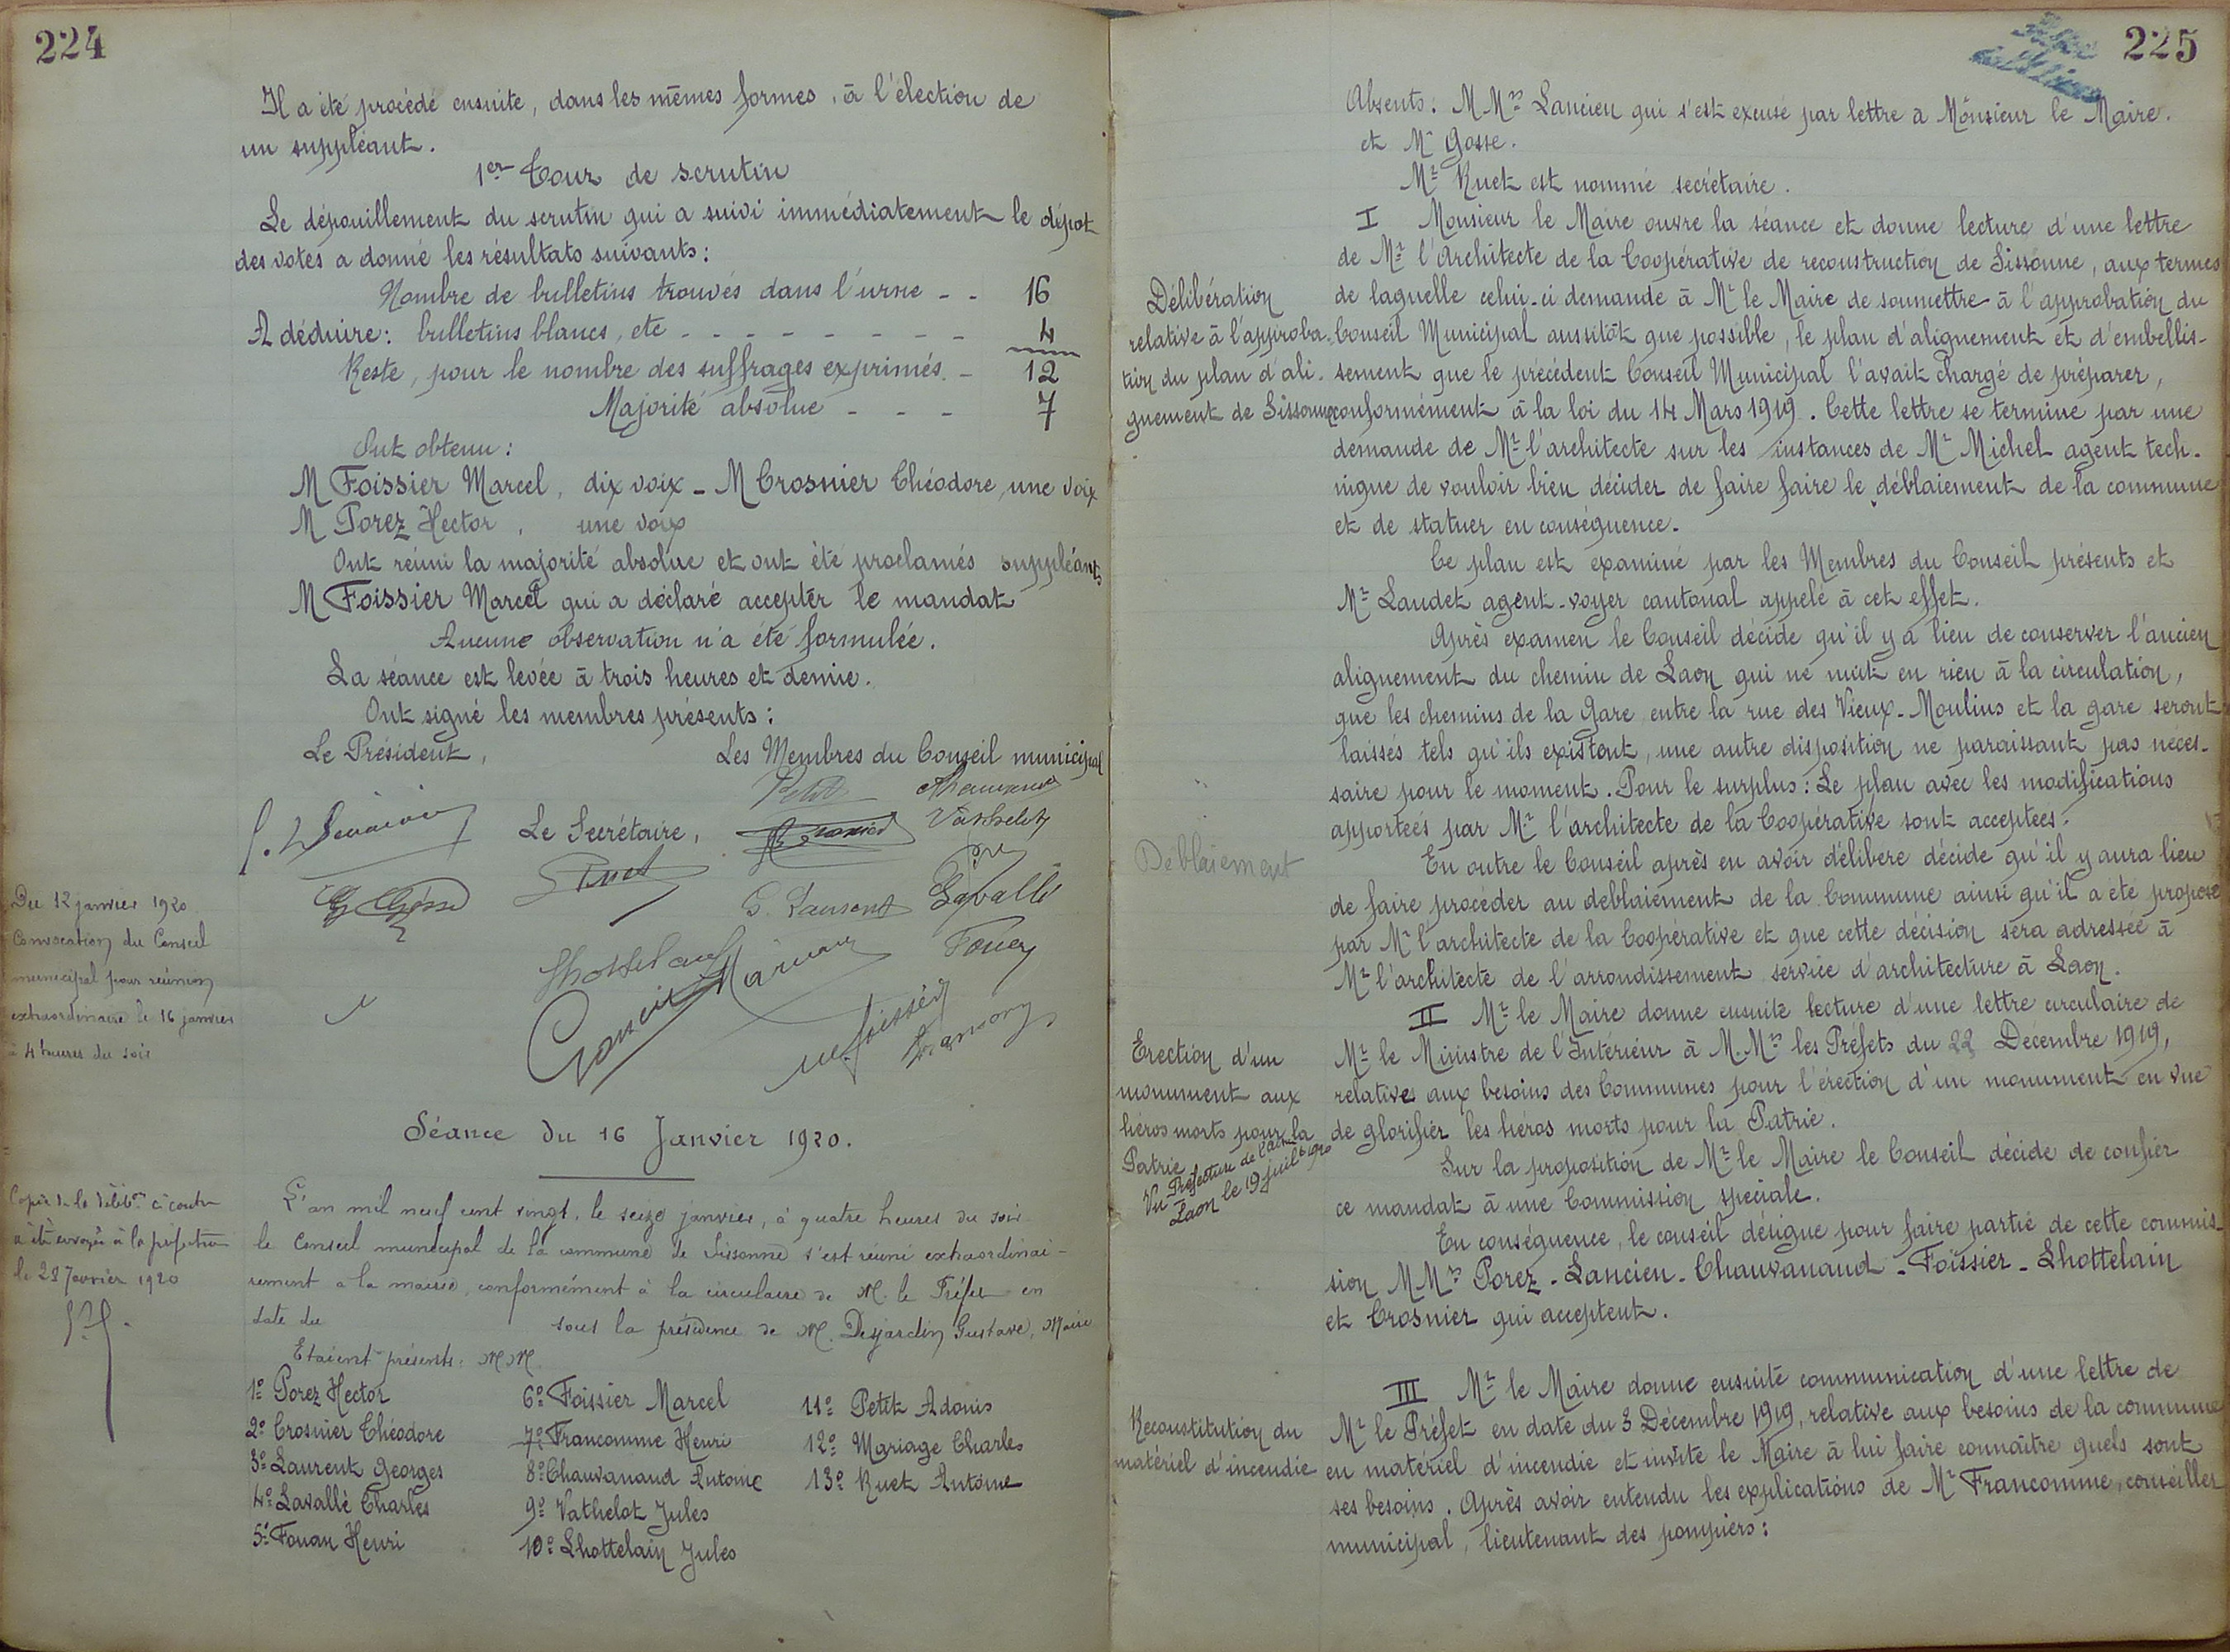 224
Il a été procédé ensuite, dans les mêmes formes, à l'élection de
un suppléant.
1er Tour de scrutin
Le dépouillement du scrutin qui a suivi immédiatement le dépot
des votes a donné les résultats suivants :
Nombre de bulletins trouvés dans l'urne - - 16
A déduire : bulletins blancs, etc - - - - - - - - 4
Reste, pour le nombre des suffrages exprimés. - 12
Majorité absolue - - - 7
Ont obtenu :
M Foissier Marcel, dix voix - M Crosnier Théodore, une voix
M Porez Hector, une voix
Ont réuni la majorité absolue et ont été proclamés suppléants
M Foissier Marcel qui a déclaré accepter le mandat
Aucune observation n'a été formulée.
La séance est levée à trois heures et demie.
Ont signé les membres présents :
Le Président, Les Membres du Conseil municipal
Petit
Vathelot
Le Secrétaire,
Ruet
G. Laurent Lavallé
Lhottelain Mariage Fouan
M. Foissier
Du 12 janvier 1920
Convocation du Conseil
municipal pour réunion
extraordinaire le 16 janvier
à 4 heures du soir
Séance du 16 Janvier 1920.
Copie de la délibon ci contre
a été envoyée à la préfecture
le 28 Janvier 1920
L'an mil neuf cent vingt, le seize janvier, à quatre heures du soir
le Conseil municipal de la commune de Sissonne s'est réuni extraordinai-
rement à la mairie, conformément à la circulaire de M. le Préfet en
date du sous la présidence de M. Desjardin Gustave, Maire
Etaient présents : M M.
1º Porez Hector 6º Foissier Marcel 11º Petit Adonis
2º Crosnier Théodore 7º Francomme Henri 12º Mariage Charles
3º Laurent Georges 8º Chauvanaud Antoine 13º Ruet Antoine
4º Lavallé Charles 9º Vathelot Jules
5º Fouan Henri 10º Lhottelain Jules
225
Absents : M Mrs Lancien qui s'est excusé par lettre à Monsieur le Maire.
et Mr Gosse.
Mr Ruet est nommé secrétaire.
I Monsieur le Maire ouvre la séance et donne lecture d'une lettre
de Mr l'Architecte de la Coopérative de reconstruction de Sissonne, aux termes
de laquelle celui-ci demande à Mr le Maire de soumettre à l'approbation du
Conseil Municipal aussitôt que possible, le plan d'alignement et d'embellis-
sement que le précédent Conseil Municipal l'avait chargé de préparer,
conformément à la loi du 14 Mars 1919. Cette lettre se termine par une
demande de Mr l'architecte sur les instances de Mr Michel agent tech-
nique de vouloir bien décider de faire faire le déblaiement de la commune
et de statuer en conséquence.
Délibération
relative à l'approba-
tion du plan d'ali-
gnement de Sissonne
Ce plan est examiné par les Membres du Conseil présents et
Mr Laudet agent-voyer cantonal appelé à cet effet.
Après examen le Conseil décide qu'il y a lieu de conserver l'ancien
alignement du chemin de Laon qui ne nuit en rien à la circulation,
que les chemins de la Gare entre la rue des Vieux-Moulins et la gare seront
laissés tels qu'ils existent, une autre disposition ne paraissant pas néces-
saire pour le moment. Pour le surplus : Le plan avec les modifications
apportées par Mr l'architecte de la Coopérative sont acceptées.
Déblaiement
En outre le Conseil après en avoir délibéré décide qu'il y aura lieu
de faire procéder au déblaiement de la Commune ainsi qu'il a été proposé
par Mr l'architecte de la Coopérative et que cette décision sera adressée à
Mr l'architecte de l'arrondissement service d'architecture à Laon.
II Mr le Maire donne ensuite lecture d'une lettre circulaire de
Mr le Ministre de l'Intérieur à M.Mrs les Préfets du 22 Décembre 1919,
relatives aux besoins des Communes pour l'érection d'un monument en vue
de glorifier les héros morts pour la Patrie.
Erection d'un
monument aux
héros morts pour la
Patrie
Vu Préfecture de l'Aisne
Laon le 19 juillt 1920
Sur la proposition de Mr le Maire le Conseil décide de confier
ce mandat à une Commission spéciale.
En conséquence, le conseil désigne pour faire partie de cette commis-
sion M Mrs Porez - Lancien - Chauvanaud - Foissier - Lhottelain
et Crosnier qui acceptent.
III Mr le Maire donne ensuite communication d'une lettre de
Mr le Préfet en date du 3 Décembre 1919, relative aux besoins de la commune
en matériel d'incendie et invite le Maire à lui faire connaître quels sont
ses besoins. Après avoir entendu les explications de Mr Francomme, conseiller
municipal, lieutenant des pompiers :
Reconstitution du
matériel d'incendie